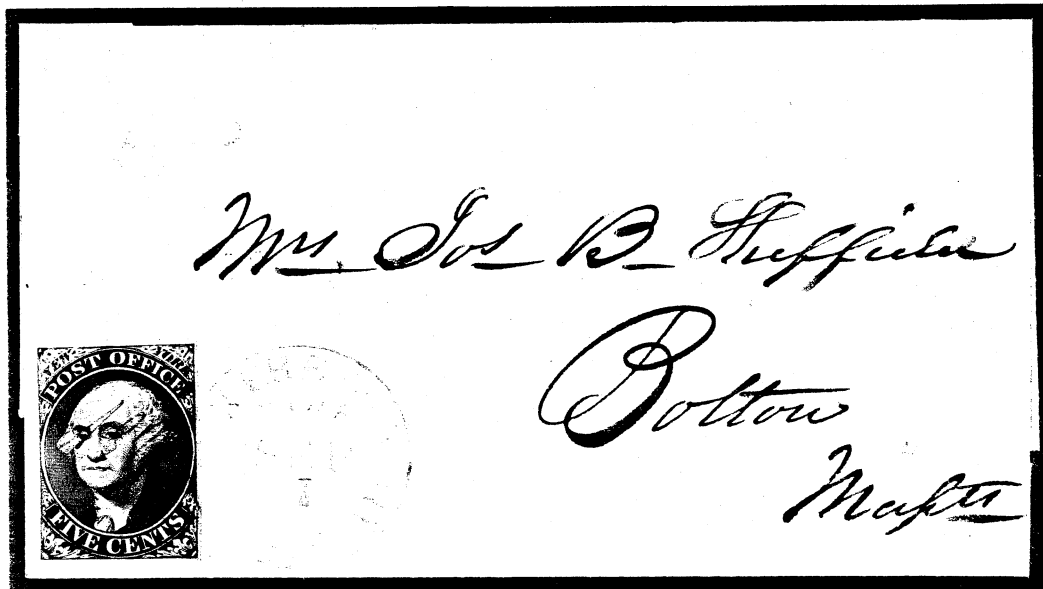 Mrs. Jos B Sheffield
Bolton
Massts
NEW YORK
POST OFFICE
FIVE CENTS